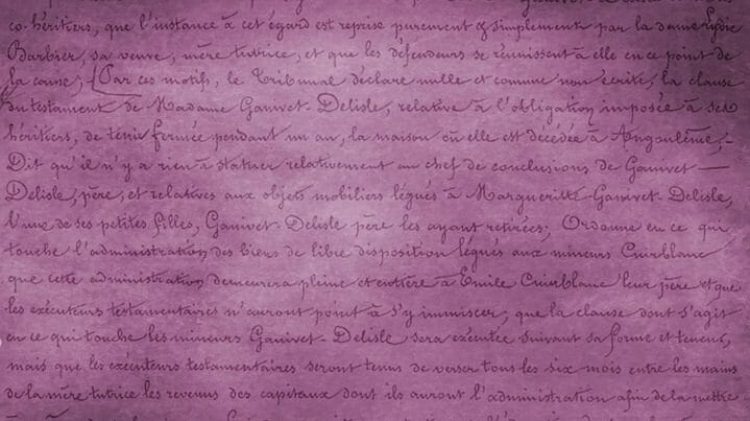 co-héritiers, que l'instance à cet égard est reprise purement & simplement par la dame
Barbier, sa veuve, mère tutrice, et que les défendeurs se réunissent à elle en ce point de
la cause; Par ces motifs, le Tribunal déclare nulle et comme non écrite, la clause
du testament de Madame Ganivet-Delisle, relative à l'obligation imposée à ses
héritiers, de tenir fermée pendant un an, la maison où elle est décédée à Angoulême;-
Dit qu'il n'y a rien à statuer relativement au chef de conclusions de Ganivet-
Delisle, père, et relatives aux objets mobiliers légués à Margueritte Ganivet-Delisle,
l'une de ses petites filles, Ganivet-Delisle père les ayant retirées; Ordonne en ce qui
touche l'administration des biens de libre disposition légués aux mineurs
que cette administration demeurera pleine et entière à Emile leur père et que
les exécuteurs testamentaires n'auront point à s'y immiscer; que la clause dont s'agit
en ce qui touche les mineurs Ganivet-Delisle sera exécutée suivant sa forme et teneur,
mais que les exécuteurs testamentaires seront tenus de verser tous les six mois entre les mains
de la mère tutrice les revenus des capitaux dont ils auront l'administration afin de la mettre